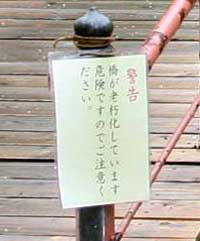 警告
橋が老朽化しています
危険ですのでご注意く
ださい。